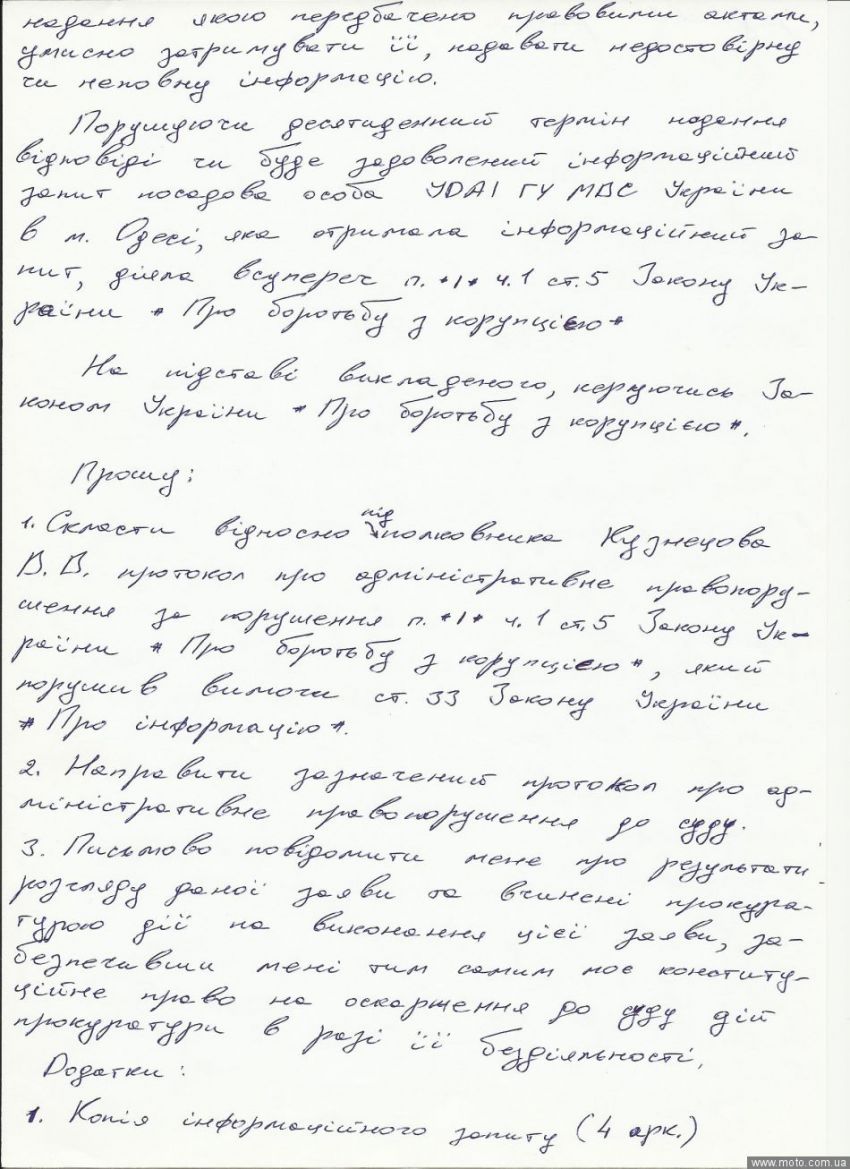 надання якою передбачено правовими актами,
умисно затримувати її, надавати недостовірну
чи неповну інформацію.
Порушуючи десятиденний термін надання
відповіді чи буде задоволений інформаційний
запит посадова особа УДАІ ГУ МВС України
в м. Одесі, яка отримала інформаційний за-
пит, діяла всупереч п. "1" ч.1 ст.5 Закону Ук-
раїни "Про боротьбу з корупцією"
На підставі викладеного, керуючись За-
коном України "Про боротьбу з корупцією".
Прошу:
1. Скласти відносно підполковника Кузнецова
В.В. протокол про адміністративне правопору-
шення за порушення п. "1" ч.1 ст.5 Закону Ук-
раїни "Про боротьбу з корупцією", який
порушив вимоги ст. 33 Закону України
"Про інформацію".
2. Направити зазначений протокол про ад-
міністративне правопорушення до суду.
3. Письмово повідомити мене про результати
розгляду даної заяви та вчинені прокура-
турою дії на виконання цієї заяви, за-
безпечивши мені тим самим моє конститу-
ційне право на оскарження до суду дій
прокуратури в разі її бездіяльності.
Додатки:
1. Копія інформаційного запиту (4 арк.)
www.moto.com.ua